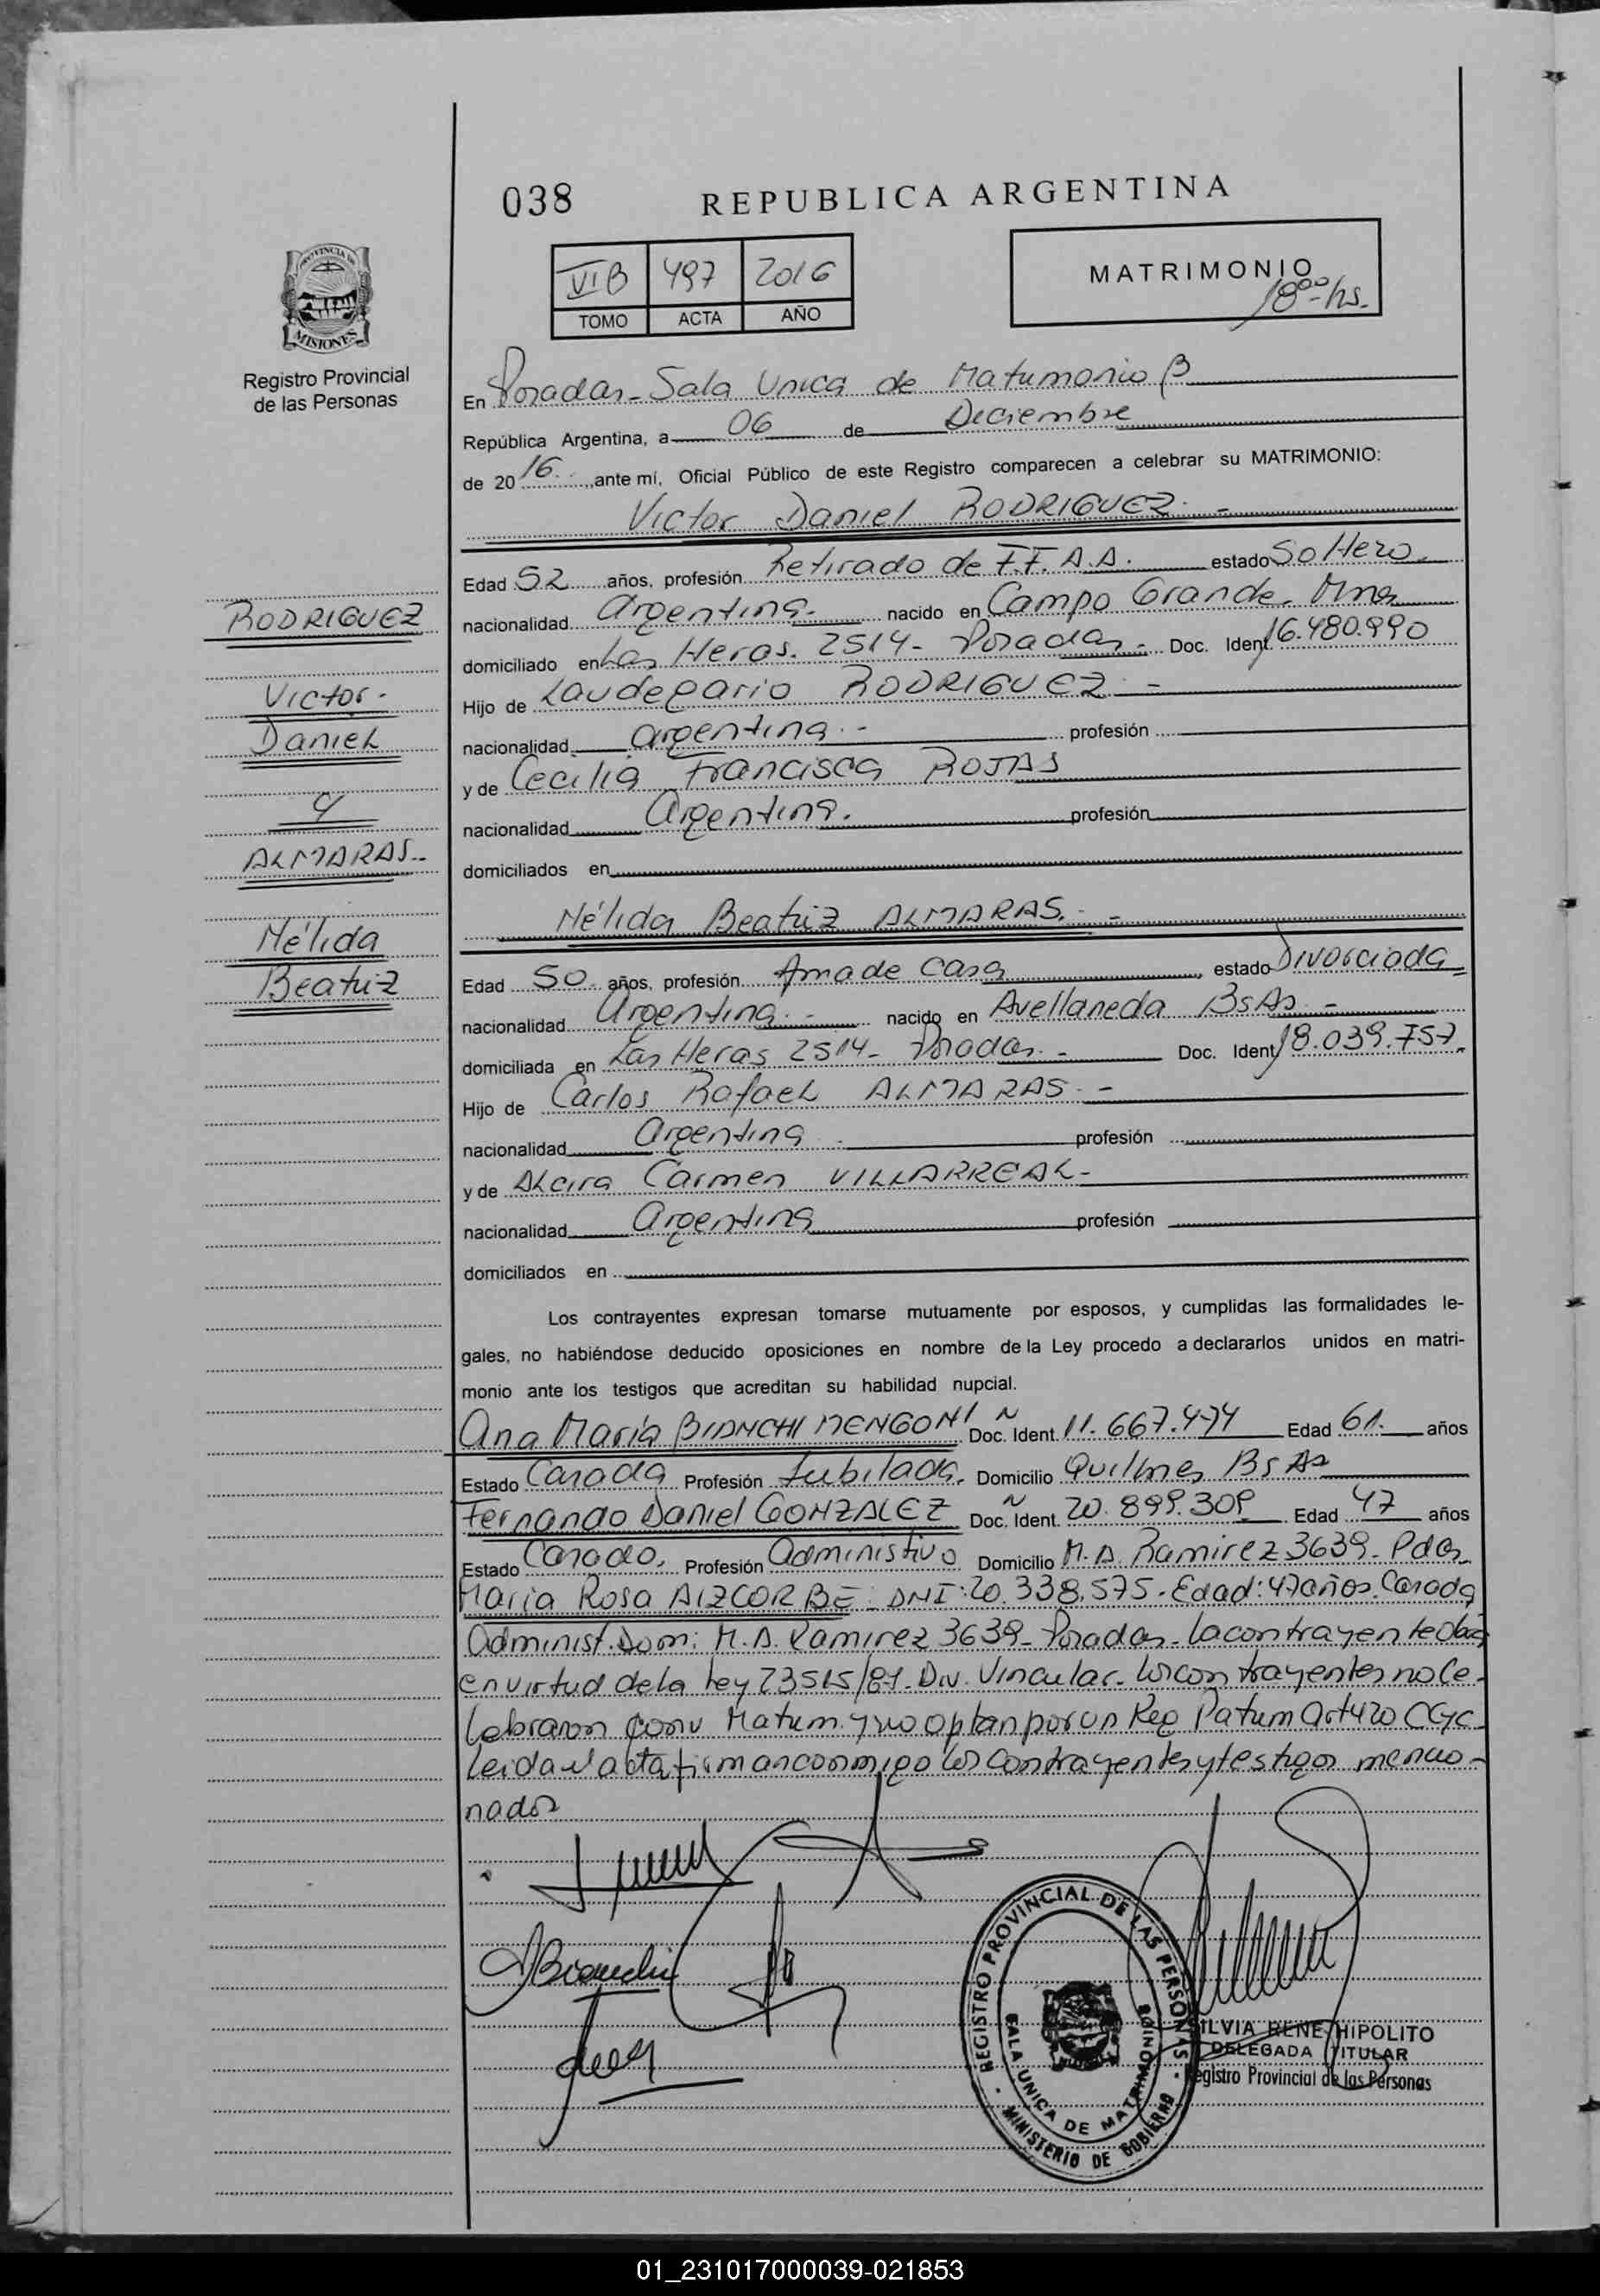 038
REPUBLICA ARGENTINA
VI B 497 2016
TOMO ACTA AÑO
MATRIMONIO
18ºº hs.
PROVINCIA DE
MISIONES
Registro Provincial
de las Personas
En Posadas - Sala Unica de Matrimonio B
República Argentina, a 06 de Deciembre
de 2016 ante mí, Oficial Público de este Registro comparecen a celebrar su MATRIMONIO:
Victor Daniel RODRIGUEZ. -
Edad 52 años, profesión Retirado de F.F.A.A. estado Soltero.
nacionalidad Argentina. nacido en Campo Grande. Mnes
domiciliado en Las Heras. 2514 - Posadas - Doc. Ident. 16.480.990
Hijo de Laudegario RODRIGUEZ. -
nacionalidad argentina. - profesión
y de Cecilia Francisca ROJAS
nacionalidad Argentina. profesión
domiciliados en
Nélida Beatriz ALMARAS. -
Edad 50 años, profesión Ama de Casa estado Divorciada
nacionalidad Argentina. - nacido en Avellaneda BsAs -
domiciliada en Las Heras 2514 - Posadas. - Doc. Ident. 18.039.757.
Hijo de Carlos Rafael ALMARAS. -
nacionalidad Argentina. profesión
y de Alcira Carmen VILLARREAL -
nacionalidad Argentina profesión
domiciliados en
RODRIGUEZ
Victor -
Daniel
y
ALMARAS..
Nélida
Beatriz
Los contrayentes expresan tomarse mutuamente por esposos, y cumplidas las formalidades le-
gales, no habiéndose deducido oposiciones en nombre de la Ley procedo a declararlos unidos en matri-
monio ante los testigos que acreditan su habilidad nupcial.
Ana María BIANCHI MENGONI Doc. Ident. 11.667.474 Edad 61. años
Estado Casada Profesión Jubilada. Domicilio Quilmes BsAs
Fernando Daniel GONZALEZ Doc. Ident. 20.899.309 Edad 47 años
Estado Casado, Profesión Administivo Domicilio M.A. Ramirez 3639 - Pdas.
Maria Rosa AIZCORBE - DNI: 20.338.575. Edad: 47 años. Casada
Administ. Dom: M.A. Ramirez 3639 - Posadas - la contrayente
en virtud de la Ley 23515/87. Div. Vincular. Los contrayentes no ce-
lebraron conv Matrim. y no optan por un Reg Patrim art 420 CCyC
leida el acta firman conmigo los contrayentes y testigos mencio-
nados
ABianchi
REGISTRO PROVINCIAL DE LAS PERSONAS
SALA UNICA DE MATRIMONIOS
MINISTERIO DE GOBIERNO
SILVIA RENE HIPOLITO
DELEGADA TITULAR
Registro Provincial de las Personas
01_231017000039-021853